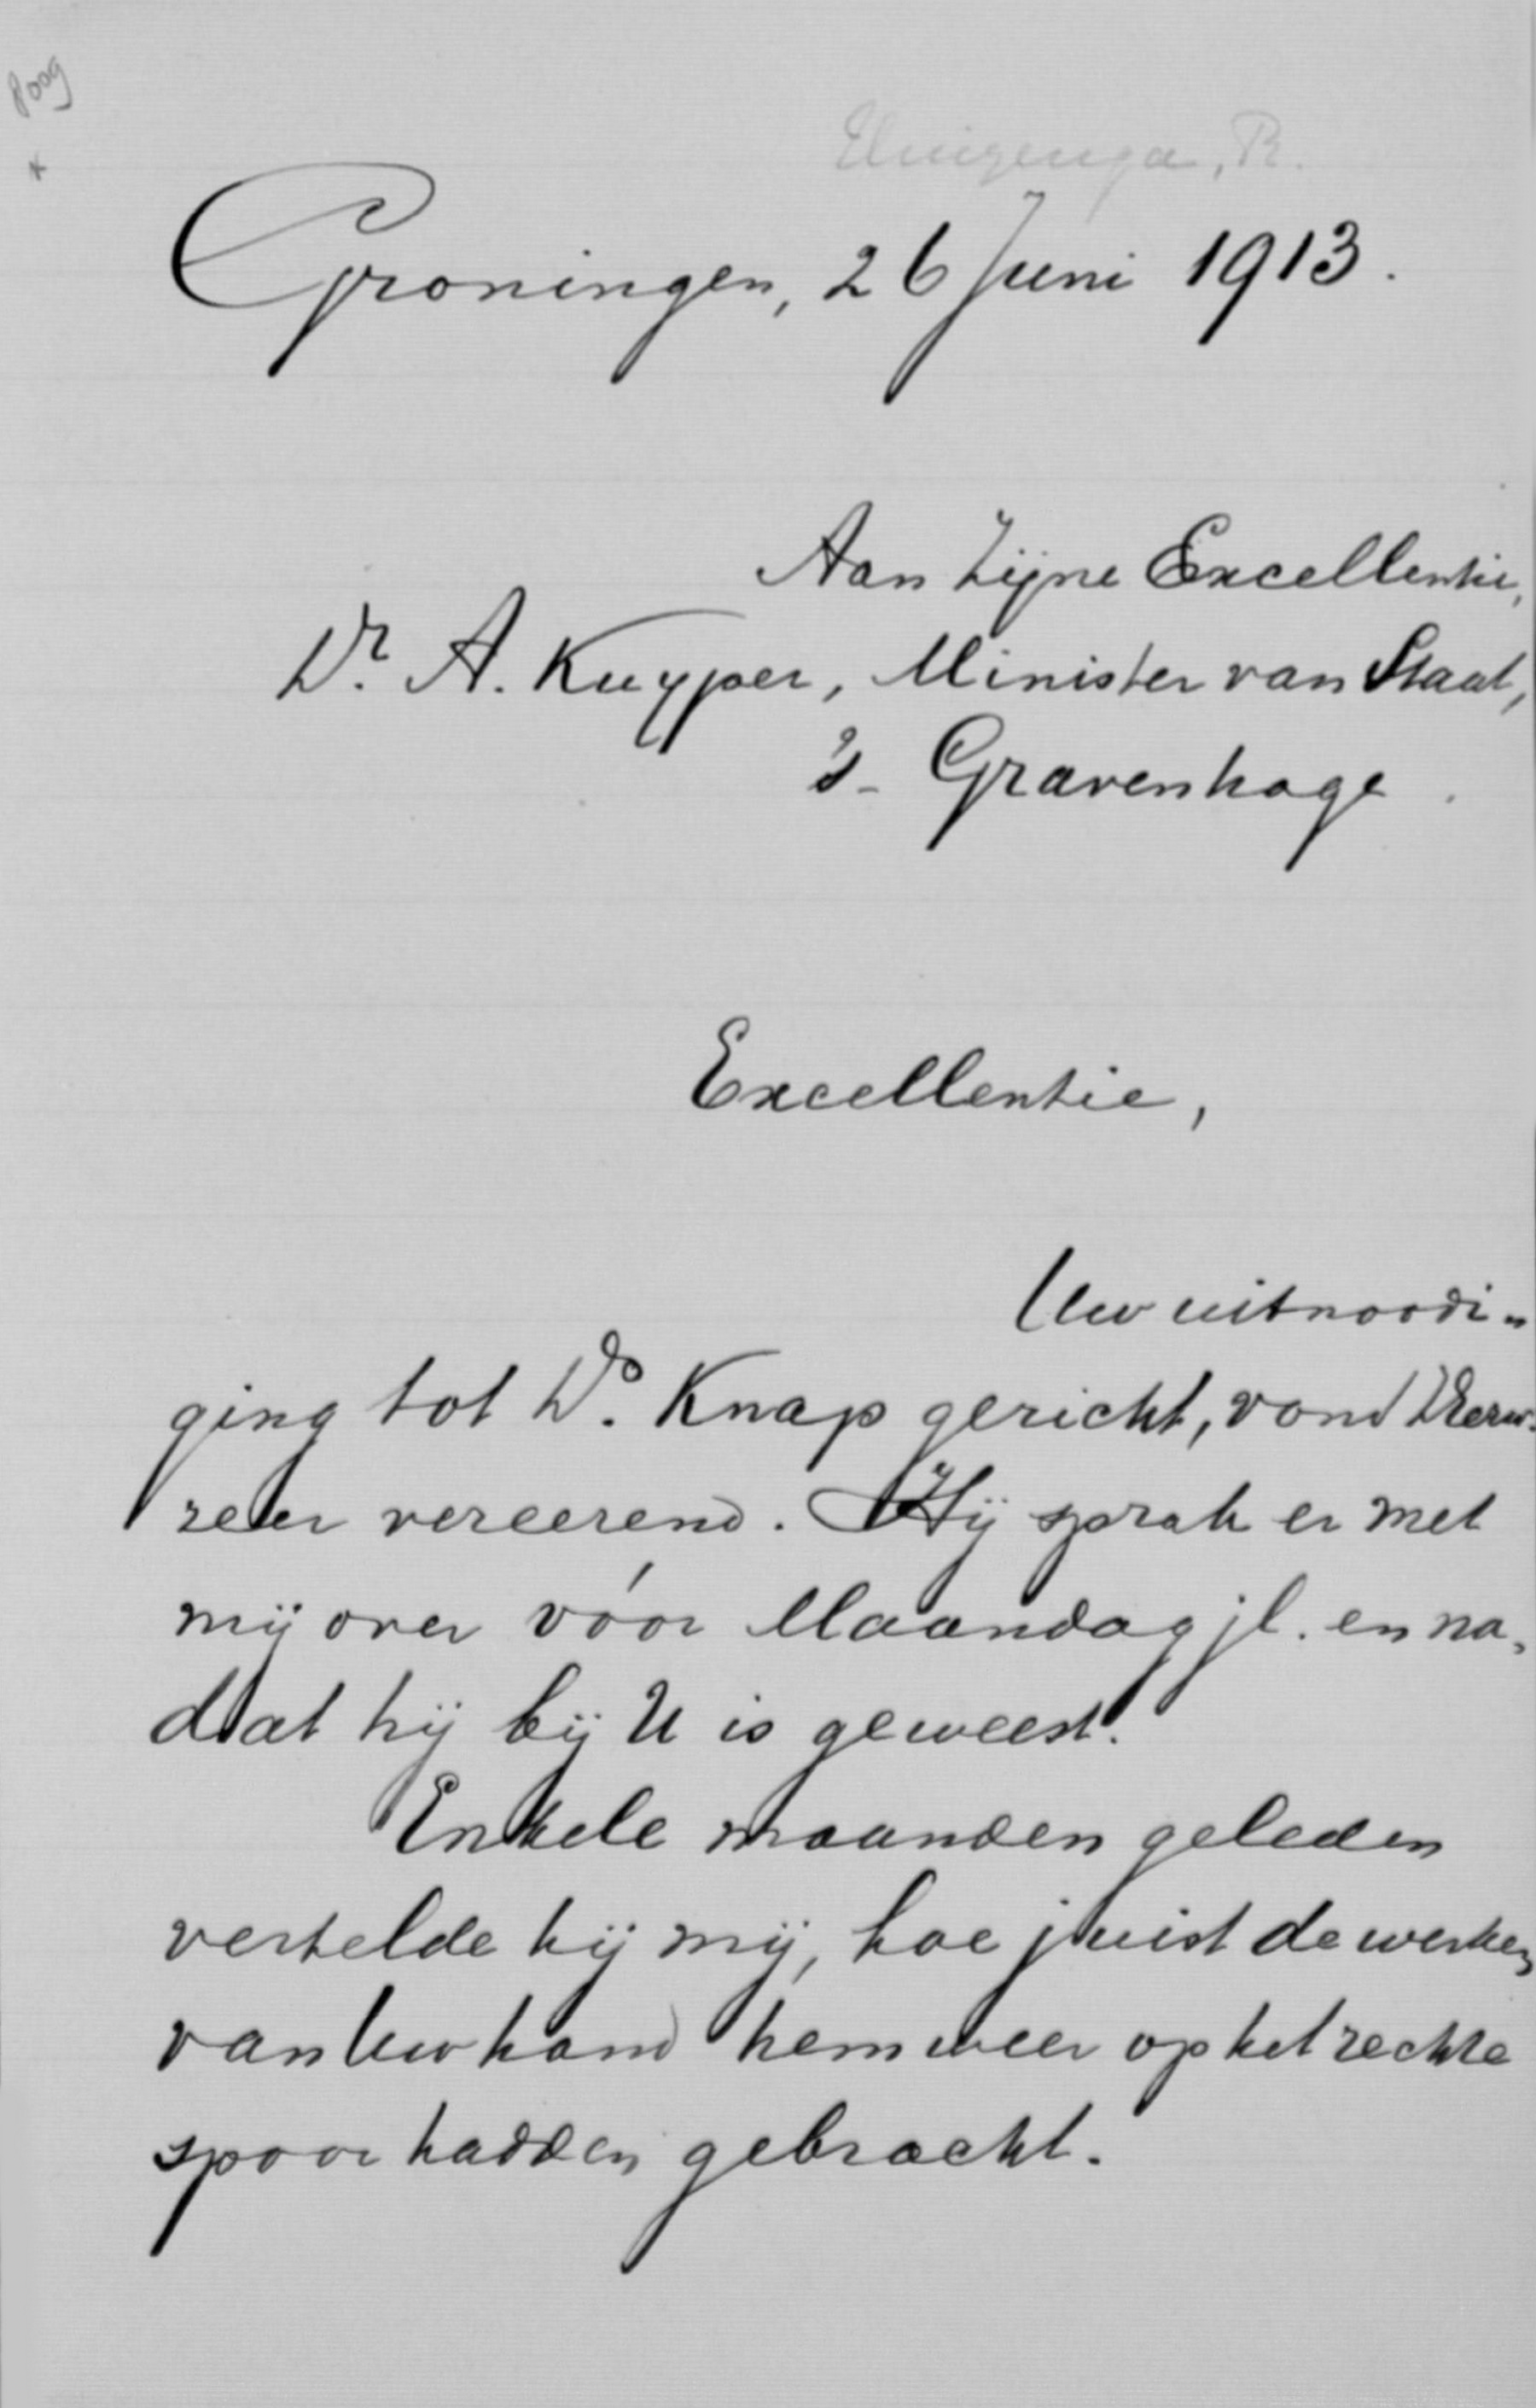 8009
Groningen, 26 Juni 1913.
Aan Zijne Excellentie,
Dr. A. Kuyper, Minister van Staat,
's-Gravenhage.
Excellentie,
Uw uitnoodi-
ging tot Ds. Knap gericht, vond ZEerw.
zeer vereerend. Hij sprak er met
mij over vóor Maandag jl. en na,
dat hij bij U is geweest.
Enkele maanden geleden
vertelde hij mij, hoe juist de werken
van Uw hand hem weer op het rechte
spoor hadden gebracht.